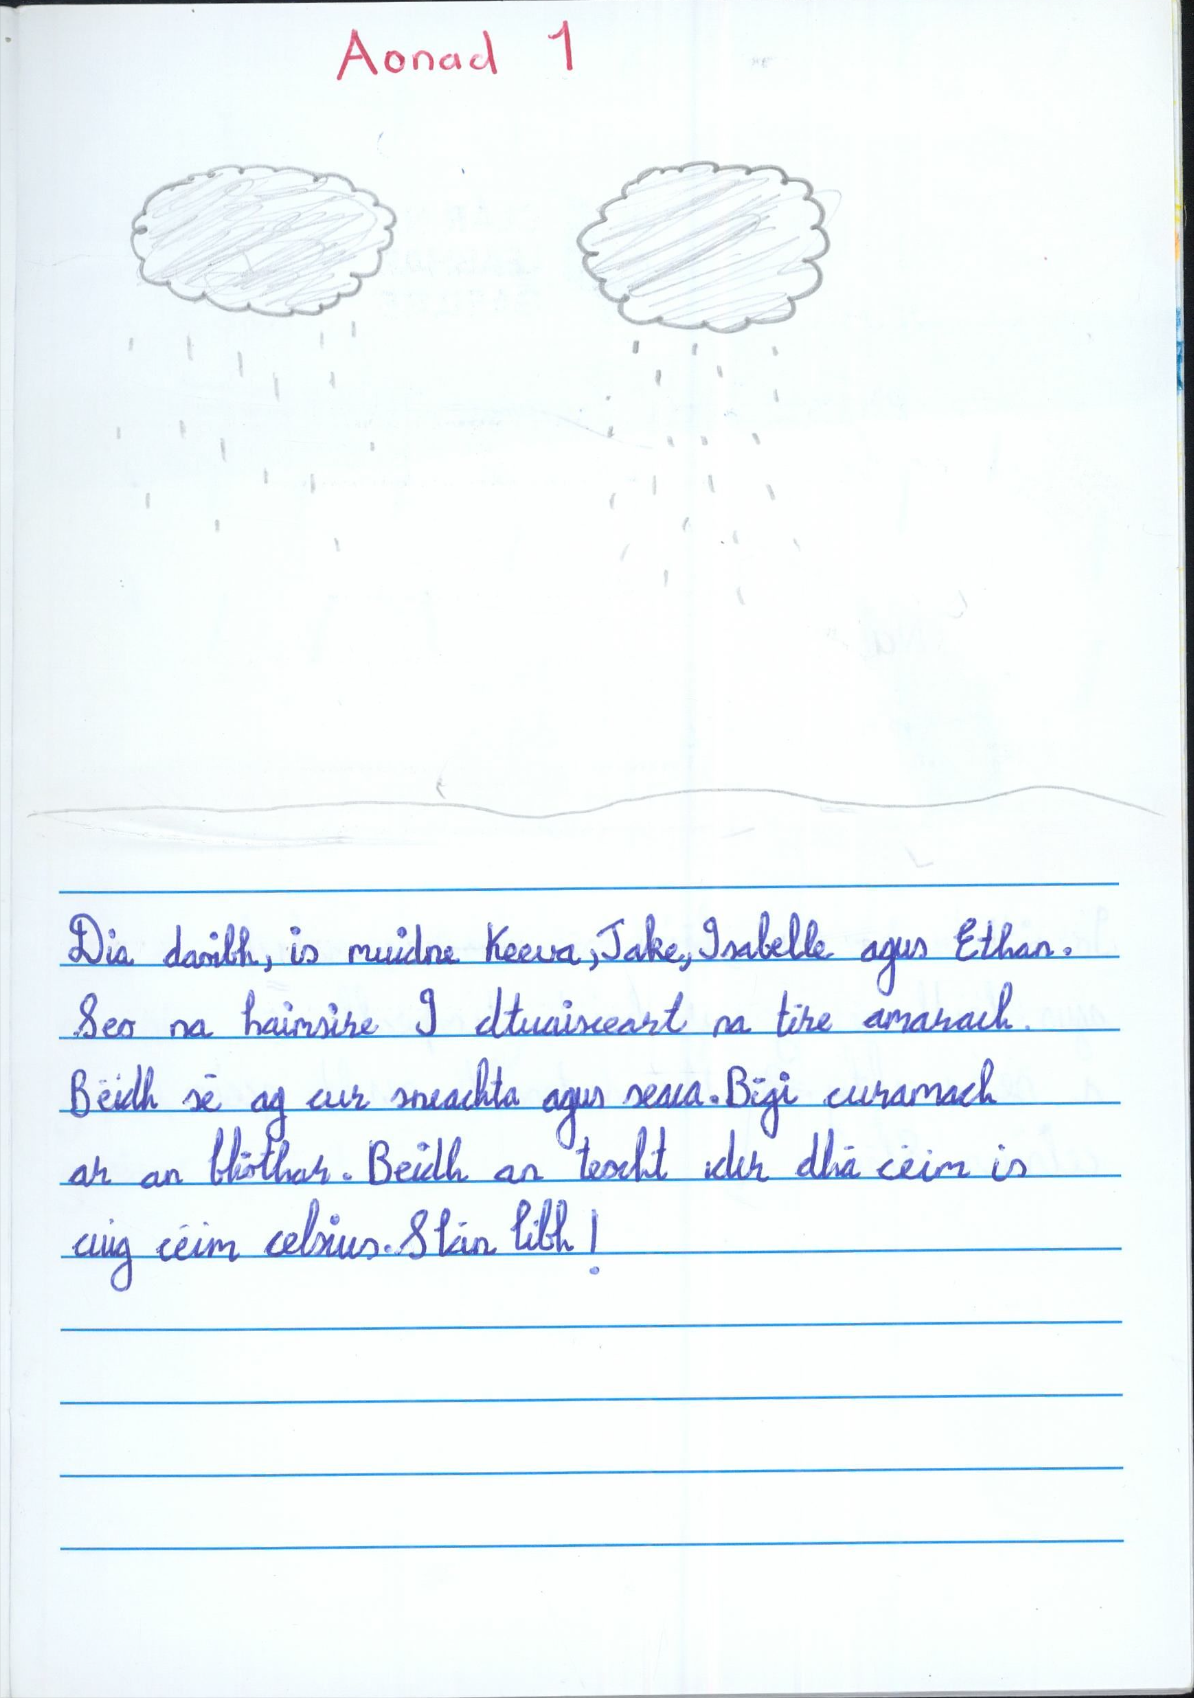 Aonad 1
Dia daoibh, is muidne Keeva, Jake, Isabelle agus Ethan.
Seo na hairsire I dtuaisceart na tire amarach.
Béidh sé ag cur sneachta agus seaca. Bígi curamach
ar an bhóthar. Beidh an teocht idir dhá céim is
cúig céim celsius. Slán libh!